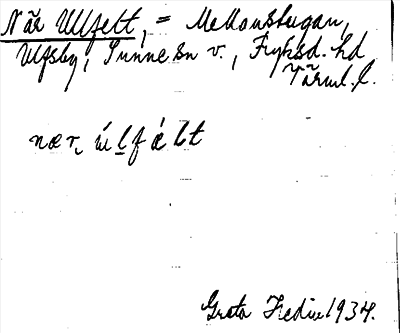 När Ulfelt, = Mellanstugan,
Ulfsby, Sunne sn v., Fryksd. hd
Värml. l.
næṛ ú̀l̠fælt
Greta Hedin 1934.